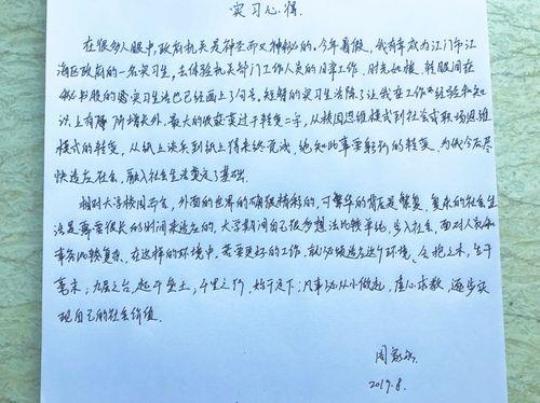 实习心得.
在很多人眼中,政府机关是神圣而又神秘的。今年暑假,我有幸成为江门市江
海区政府的一名实习生,去体验机关部门工作人员的日常工作。时光如梭,转眼间在
秘书股的实习生活已经画上了句号。短暂的实习生活除了让我在工作经验和知
识上有所增长外,最大的收获莫过于转变二字,从校园思维模式到社会或职场思维
模式的转变,从纸上谈兵到纸上得来终觉浅,绝知此事要躬行的转变。为我今后尽
快适应社会,融入社会生活奠定了基础.
相对大学校园而言,外面的世界的确很精彩的,可繁华的背后是繁复,复杂的社会生
活是需要很长的时间来适应的,大学期间自己很多想法比较单纯,步入社会,面对人和
事务比较复杂,在这样的环境中,若要更好的工作,就必须适应这个环境、合抱之木,生于
毫末;九层之台,起于垒土;千里之行,始于足下;凡事必从小做起,虚心求教,逐步实
现自己的社会价值.
周
2019.8.